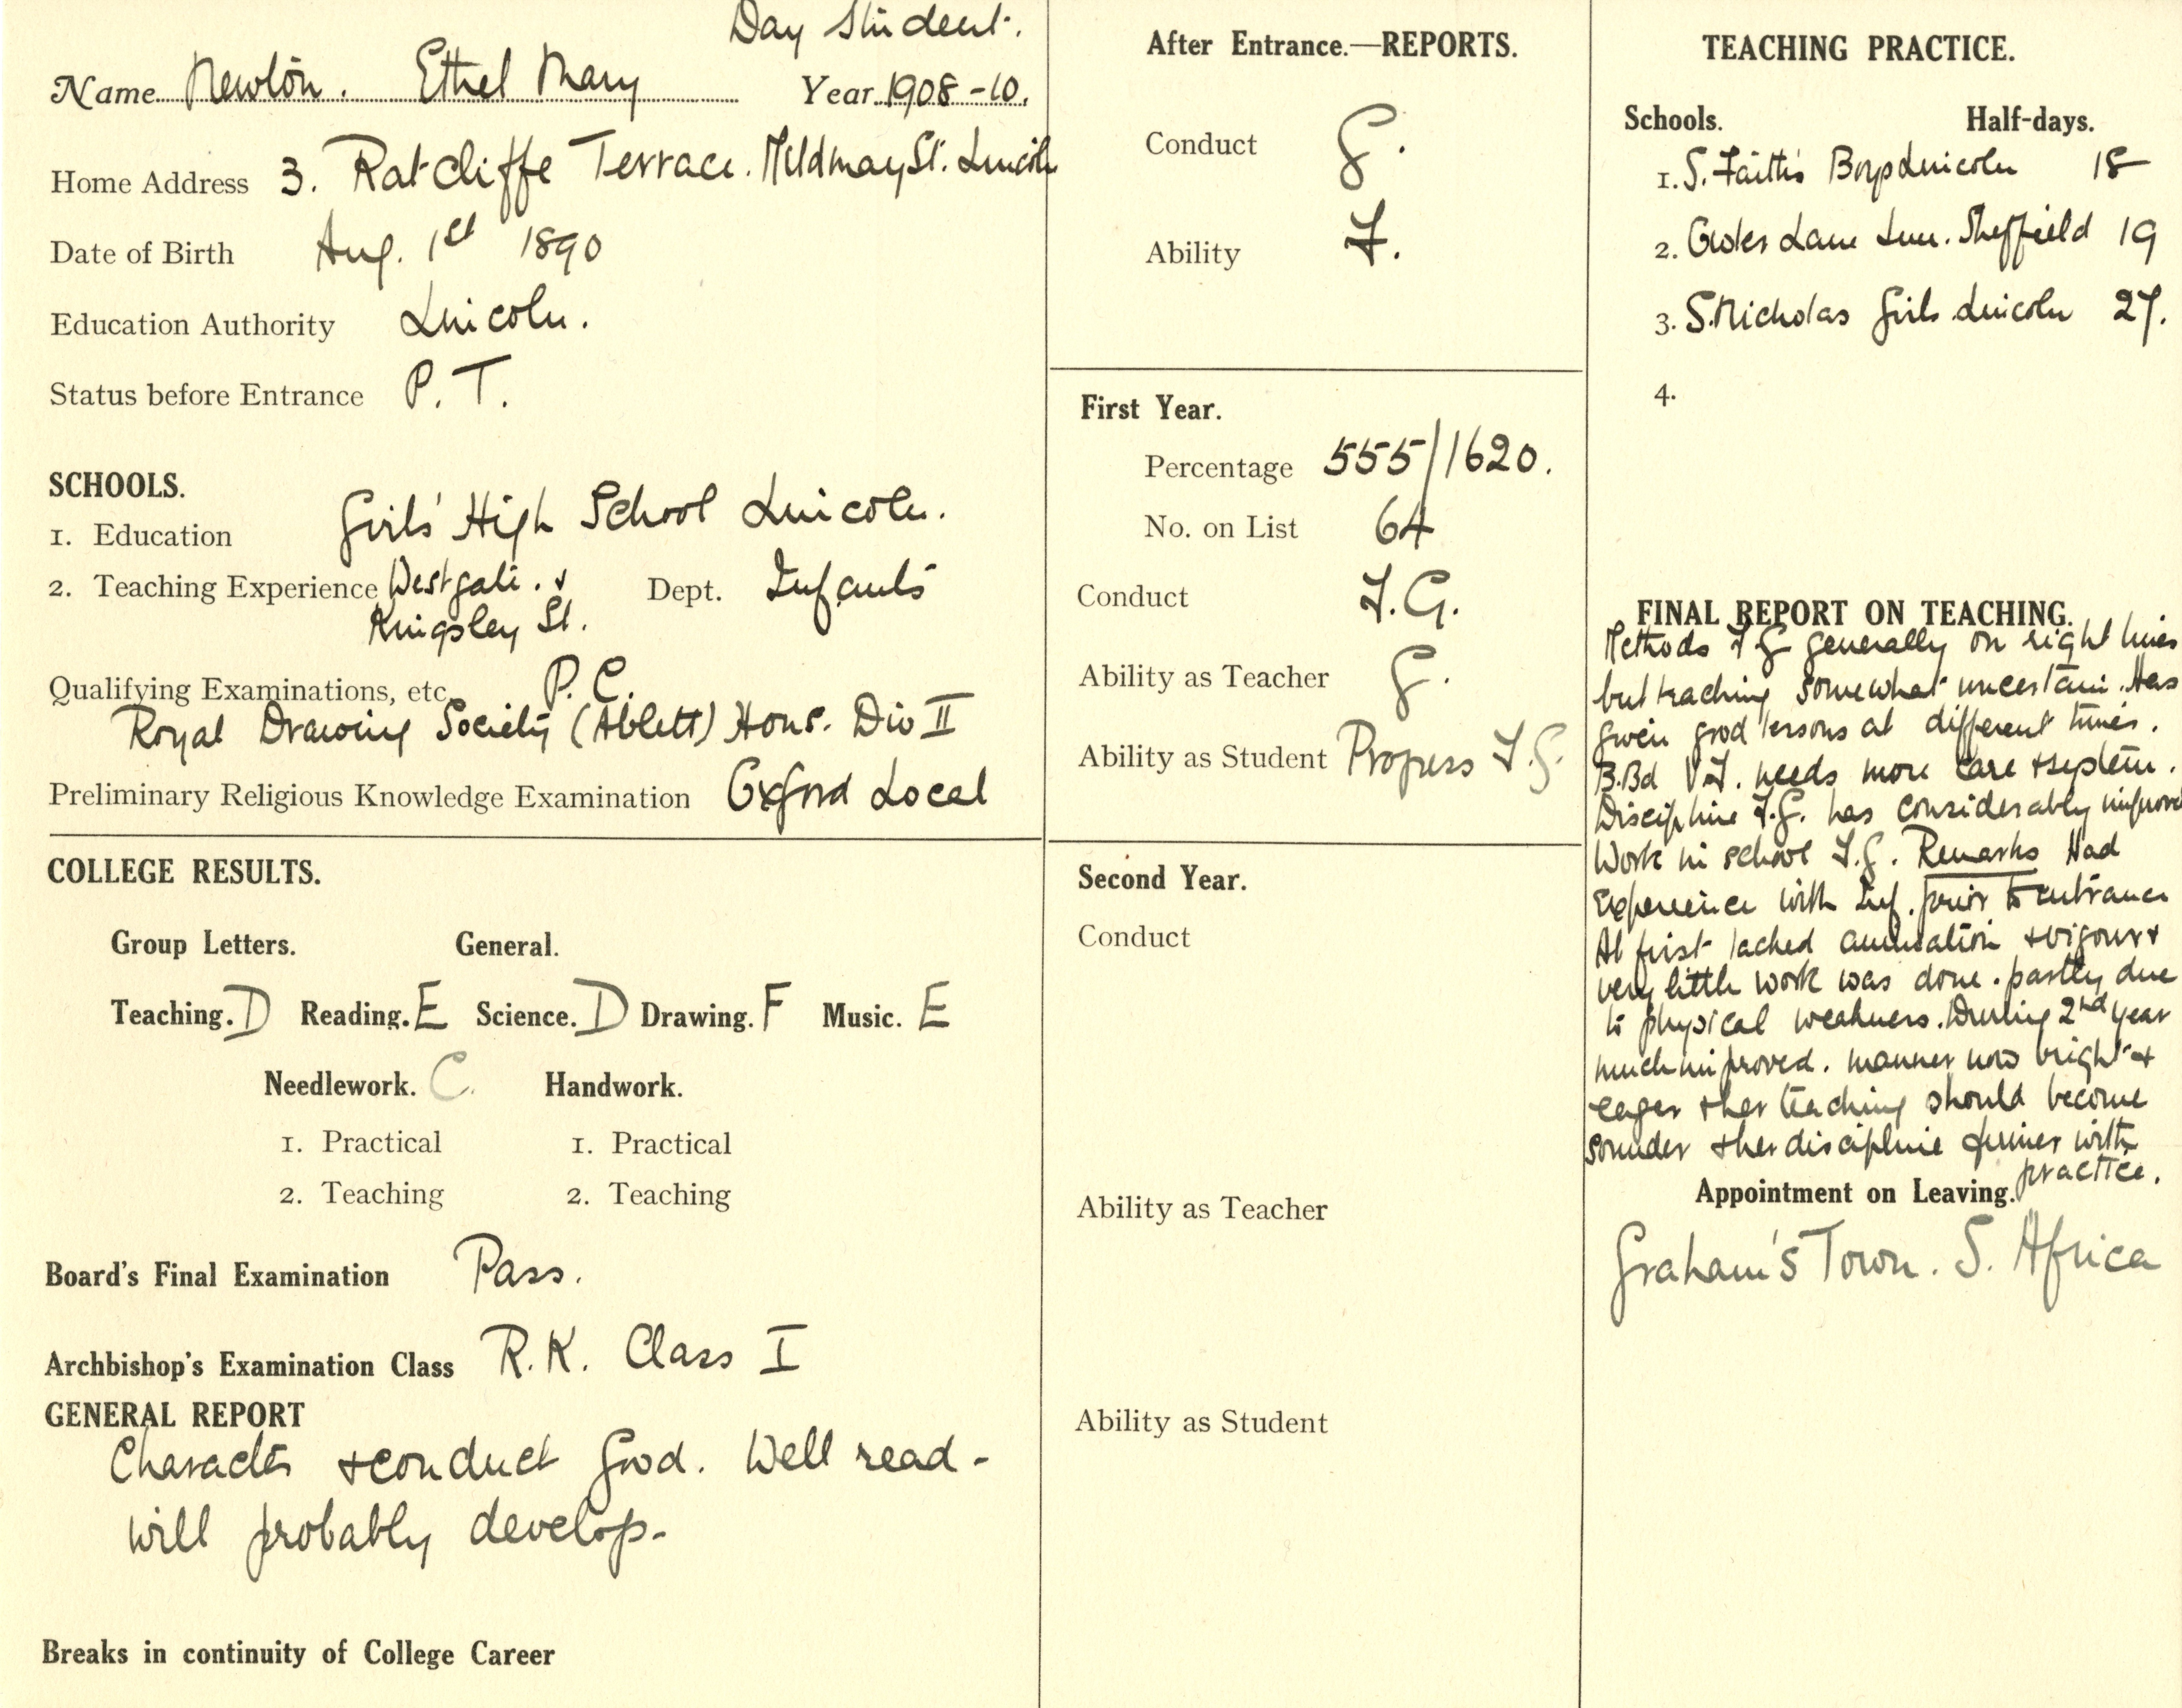 Day Student.
Name Newton. Ethel Mary Year 1908-10.
Home Address 3. Ratcliffe Terrace. Mildmay St. Lincoln
Date of Birth Aug. 1st 1890
Education Authority Lincoln.
Status before Entrance P. T.
SCHOOLS.
1. Education Girls' High School Lincoln.
2. Teaching Experience Westgate. & Dept. Infants
Kingsley St.
Qualifying Examinations, etc. P. C.
Royal Drawing Society (Ablett) Hons. Div II
Preliminary Religious Knowledge Examination Oxford Local
COLLEGE RESULTS.
Group Letters. General.
Teaching. D Reading. E Science. D Drawing. F Music. E
Needlework. C. Handwork.
1. Practical 1. Practical
2. Teaching 2. Teaching
Board's Final Examination Pass.
Archbishop's Examination Class R.K. Class I
GENERAL REPORT
Character & conduct good. Well read -
will probably develop -
Breaks in continuity of College Career
After Entrance.—REPORTS.
Conduct G.
Ability F.
First Year.
Percentage 555/1620.
No. on List 64
Conduct F.G.
Ability as Teacher G.
Ability as Student Progress F.G.
Second Year.
Conduct
Ability as Teacher
Ability as Student
TEACHING PRACTICE.
Schools. Half-days.
1. S. Faith's Boys Lincoln 18
2. Lane Sheffield 19
3. S. Nicholas Girls Lincoln 27.
4.
FINAL REPORT ON TEACHING.
Methods F G generally on right lines
but teaching somewhat uncertain. Has
given good lessons at different times.
B.Bd V.F. needs more care & system.
Discipline F.G. has considerably improved
Work in school F.G. Remarks Had
experience with Inf. prior to entrance
At first lacked animation & vigour &
very little work was done. partly due
to physical weakness. During 2nd year
much improved. manner now bright &
eager & her teaching should become
sounder & her discipline firmer with
practice.
Appointment on Leaving.
Graham's Town. S. Africa